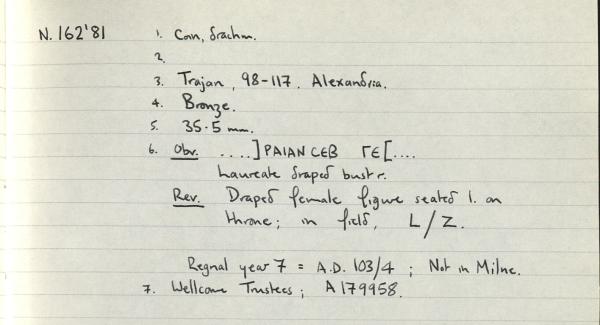 N. 162'81 1. Coin, drachm.
2.
3. Trajan, 98-117. Alexandria.
4. Bronze.
5. 35.5 mm.
6. Obv. ....] ΡΑΙΑΝ CEB ΓΕ[....
Laureate draped bust r.
Rev. Draped female figure seated l. on
throne; in field, L/Z.
Regnal year 7 = A.D. 103/4; Not in Milne.
7. Wellcome Trustees; A179958.